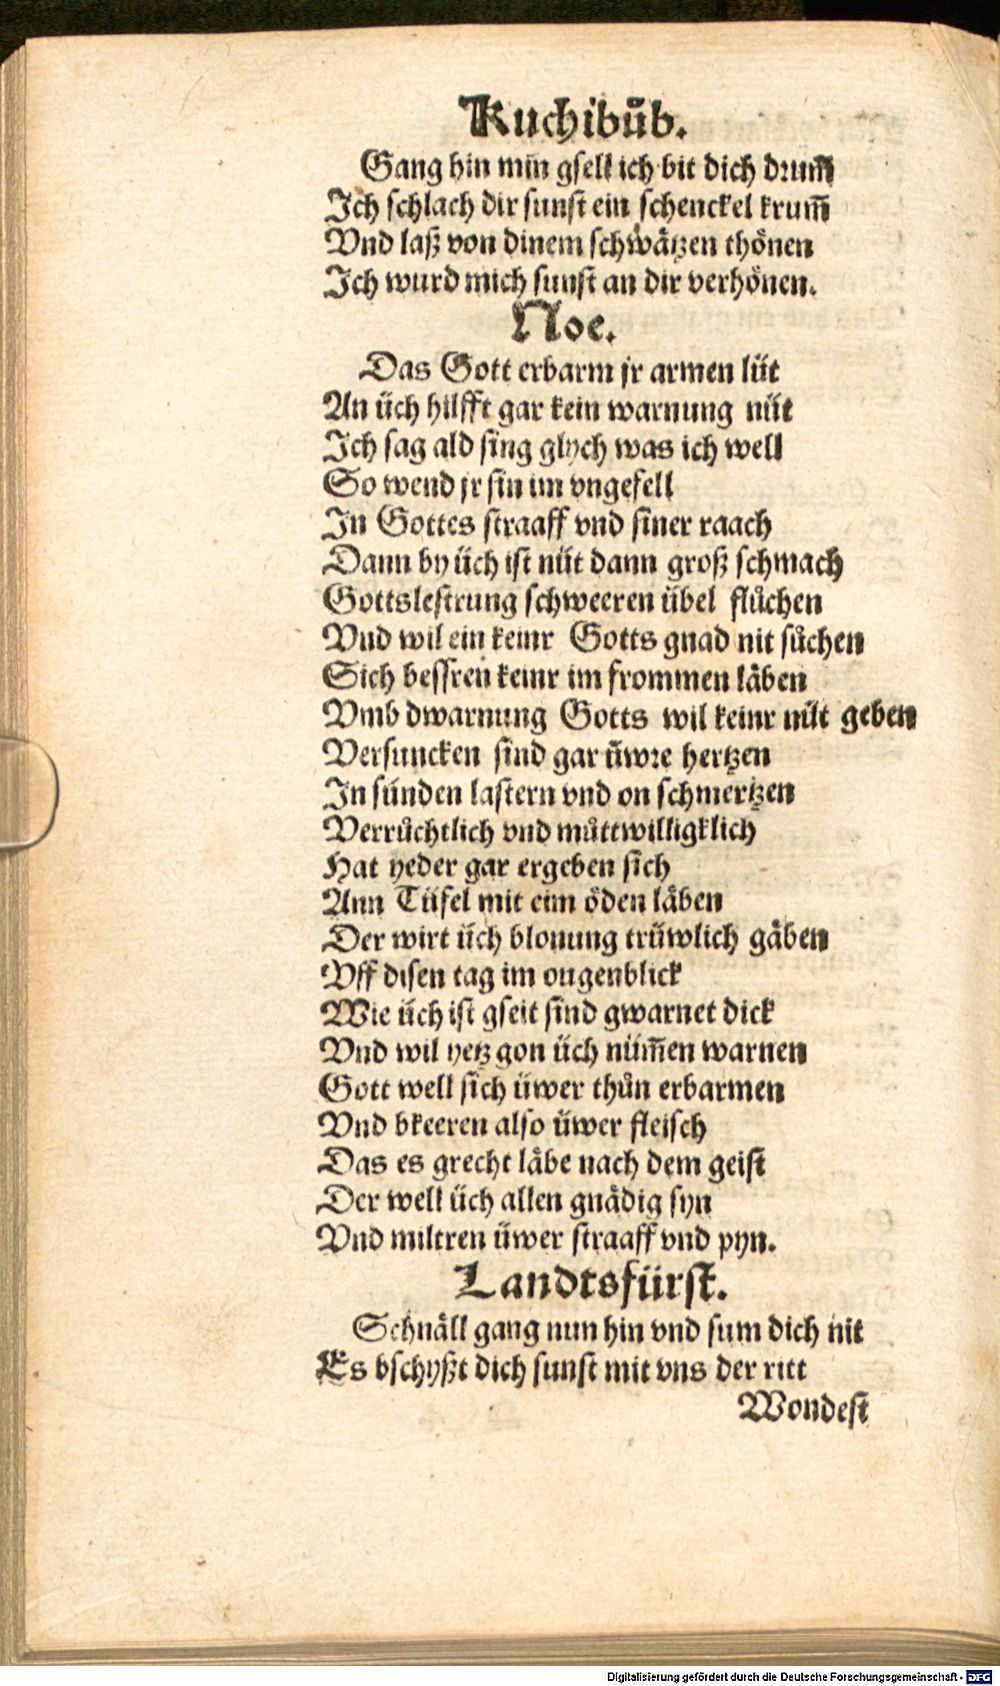 Kuchibůb.
Gang hin min gsell ich bit dich drum̃
Ich schlach dir sunst ein schenckel krum̃
Vnd laß von dinem schwätzen thönen
Ich wurd mich sunst an dir verhönen.
Noe.
Das Gott erbarm jr armen lüt
An üch hilfft gar kein warnung nüt
Ich sag ald sing glych was ich well
So wend jr sin im vngefell
In Gottes straaff vnd siner raach
Dann by üch ist nüt dann groß schmach
Gottslestrung schweeren übel flůchen
Vnd wil ein keinr Gotts gnad nit sůchen
Sich bessren keinr im frommen läben
Vmb dwarnung Gotts wil keinr nüt geben
Versuncken sind gar üwre hertzen
In sünden lastern vnd on schmertzen
Verrůchtlich vnd můttwilligklich
Hat yeder gar ergeben sich
Ann Tüfel mit eim öden läben
Der wirt üch blonung trüwlich gäben
Vff disen tag im ougenblick
Wie üch ist gseit sind gwarnet dick
Vnd wil yetz gon üch nüm̃en warnen
Gott well sich üwer thůn erbarmen
Vnd bkeeren also üwer fleisch
Das es grecht läbe nach dem geist
Der well üch allen gnädig syn
Vnd miltren üwer straaff vnd pyn.
Landtsfürst.
Schnäll gang nun hin vnd sum dich nit
Es bschyßt dich sunst mit vns der ritt
Wondest
Digitalisierung gefördert durch die Deutsche Forschungsgemeinschaft - DFG